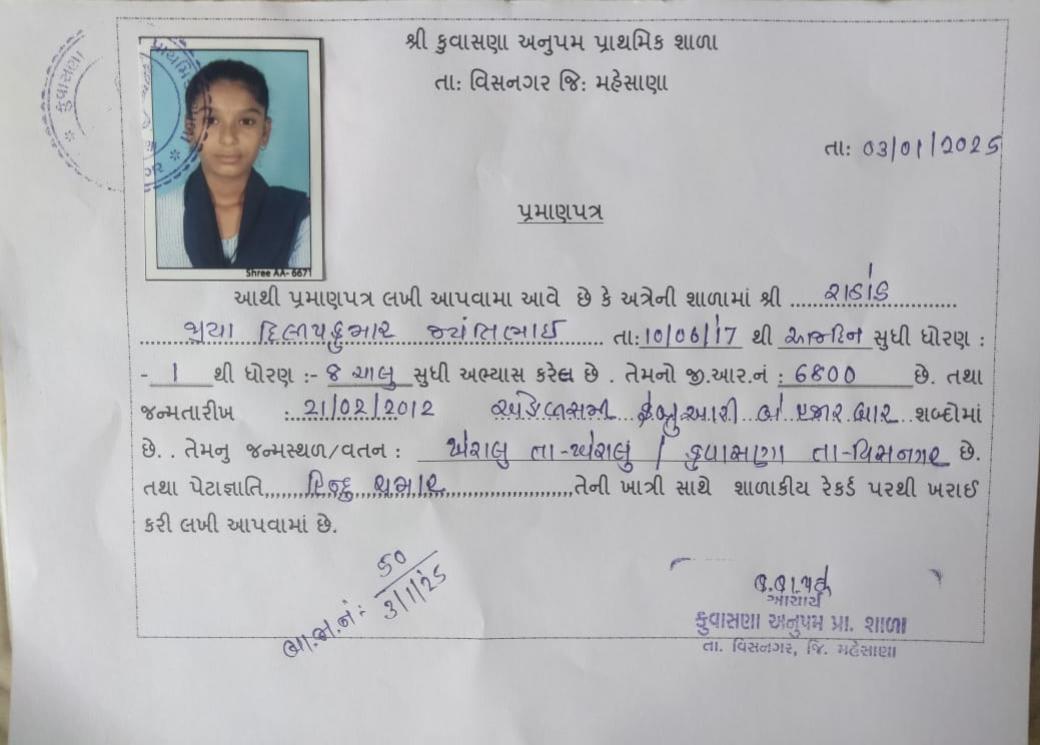 શ્રી કુવાસણા અનુપમ પ્રાથમિક શાળા
તા: વિસનગર જિ: મહેસાણા
તા: 03/01/2025
કુવાસણા
Shree AA- 6671
પ્રમાણપત્ર
આથી પ્રમાણપત્ર લખી આપવામા આવે છે કે અત્રેની શાળામાં શ્રી
દિલીપકુમાર જયંતિભાઈ તા: 10/06/17 થી આજદિન સુધી ધોરણ :
- 1 થી ધોરણ :- 8 ચાલુ સુધી અભ્યાસ કરેલ છે . તેમનો જી.આર.નં : 6800 છે. તથા
જન્મતારીખ : 21/02/2012 ફેબ્રુઆરી બે હજાર બાર શબ્દોમાં
છે. . તેમનુ જન્મસ્થળ/વતન : ખેરાલુ તા-ખેરાલુ / કુવાસણા તા-વિસનગર છે.
તથા પેટાજ્ઞાતિ,,,,,,, હિન્દુ ચમાર ,,,,,,,તેની ખાત્રી સાથે શાળાકીય રેકર્ડ પરથી ખરાઈ
કરી લખી આપવામાં છે.
જા.ન.નં: 50
3/1/25
આચાર્ય
કુવાસણા અનુપમ પ્રા. શાળા
તા. વિસનગર, જિ. મહેસાણા